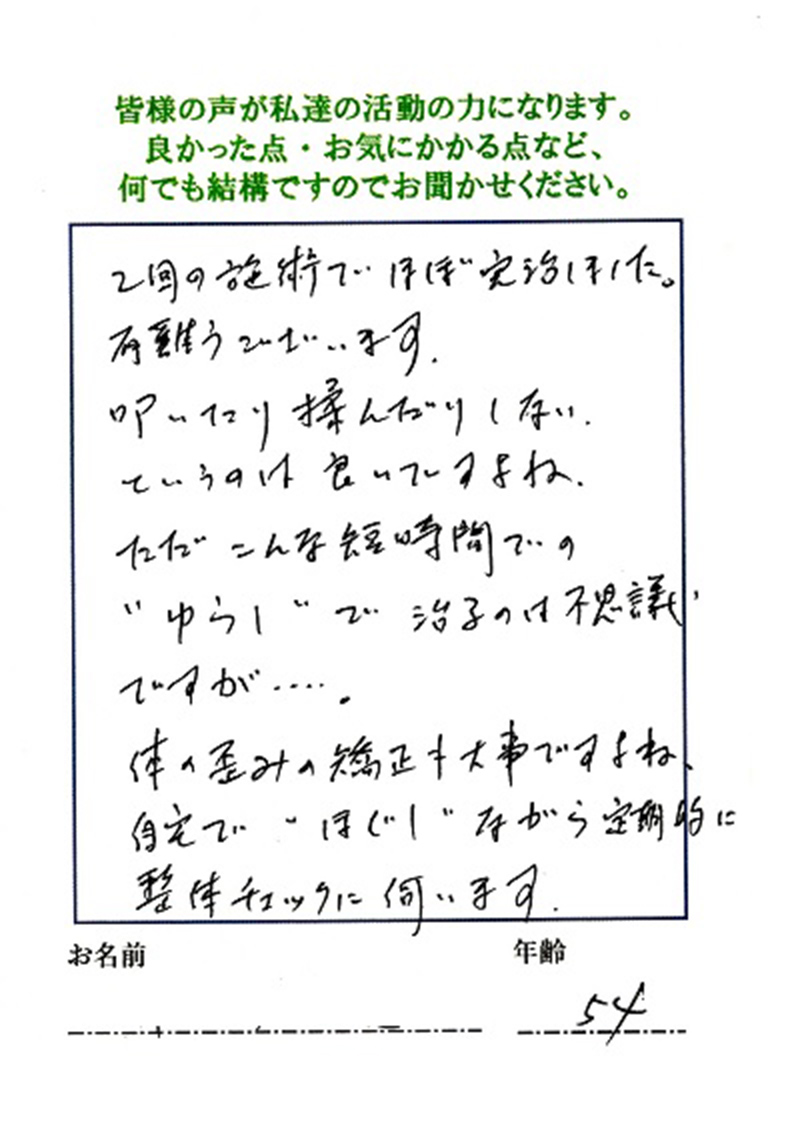 皆様の声が私達の活動の力になります。
良かった点・お気にかかる点など、
何でも結構ですのでお聞かせください。
2回の施術でほぼ完治しました。
有難うございます.
叩いたり揉んだりしない.
というのは良いですよね.
ただこんな短時間での
"ゆらし"で治るのは不思議
ですが‥‥。
体の歪みの矯正も大事ですよね、
自宅で"ほぐし"ながら定期的に
整体チェックに伺います.
お名前 年齢
54